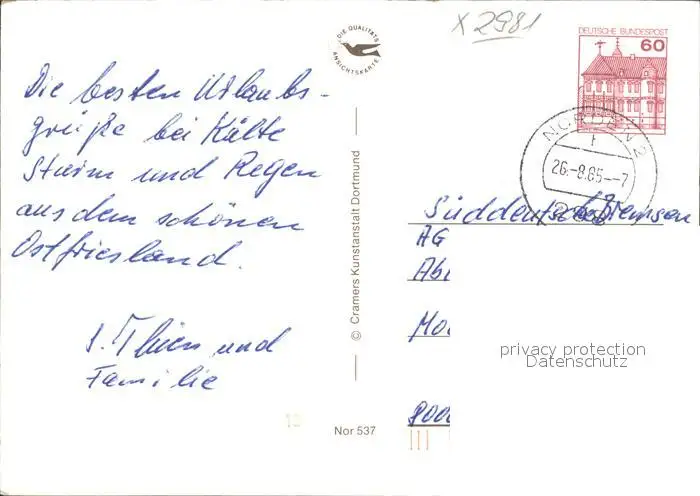 Die besten Urlaubs-
grüße bei Kälte
Sturm und Regen
aus dem schönen
Ostfriesland.
und
Familie
DIE QUALITÄTS
ANSICHTSKARTE
© Cramers Kunstanstalt Dortmund
Nor 537
X 2981
DEUTSCHE BUNDESPOST
60
NORDEN 2
26.-8.85--7
Süddeutsche Bremsen
AG
privacy protection
Datenschutz